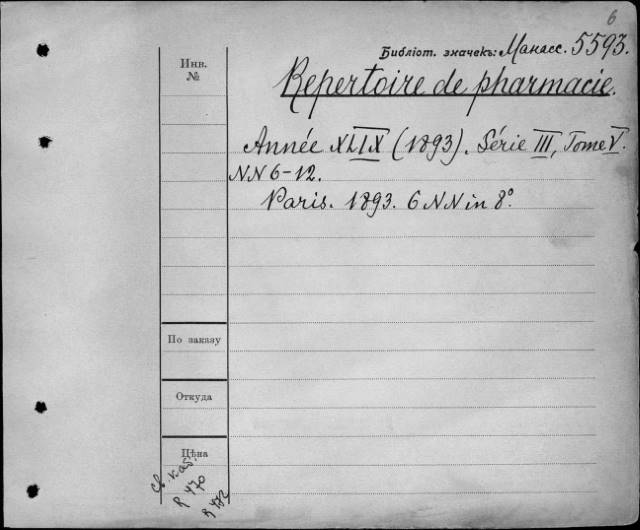 6
Библіот. значекъ: Манасс. 5593.
Инв.
№
Repertoire de pharmacie.
Année XLIX (1893). Série III, Tome V.
NN 6-12.
Paris. 1893. 6 NN in 8°.
По заказу
Откуда
Цѣна
св. каб.
R 470
R 472